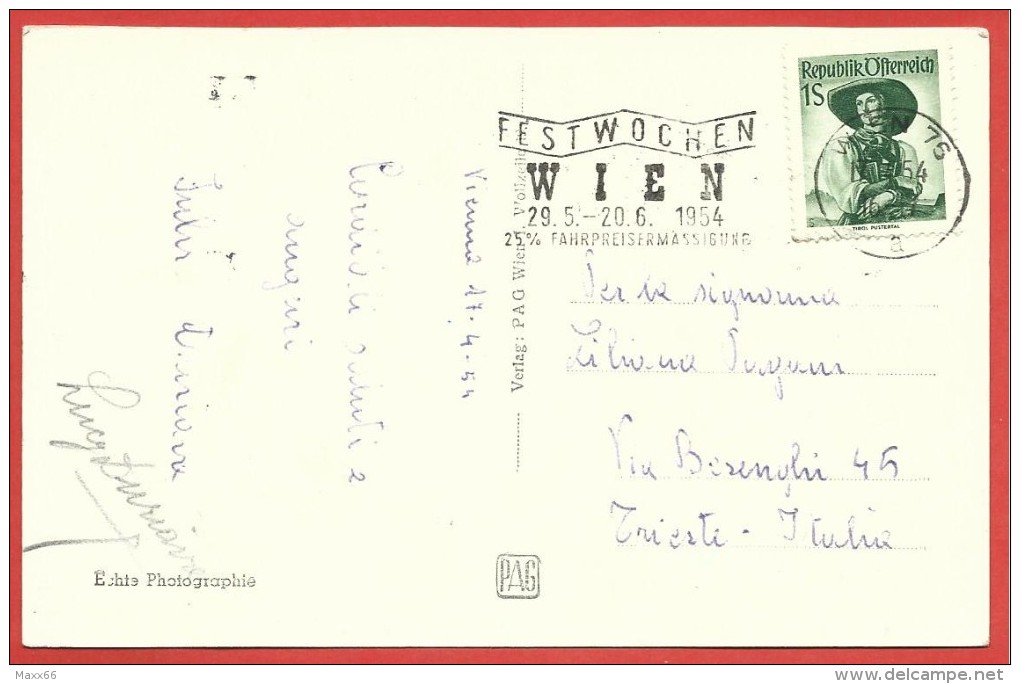 Vienna 17.4.54
Cordiali saluti e
auguri
FESTWOCHEN
WIEN
29.5.-20.6. 1954
25% FAHRPREISERMÄSSIGUNG
Republik Österreich
1S
TIROL PUSTERTAL
WIEN 76
54
a
Verlag: PAG Wien
Per la signorina
Liliana Pagani
Via Besenghi 45
Trieste - Italia
PAG
Echte Photographie
Maxx66
www.delcampe.net